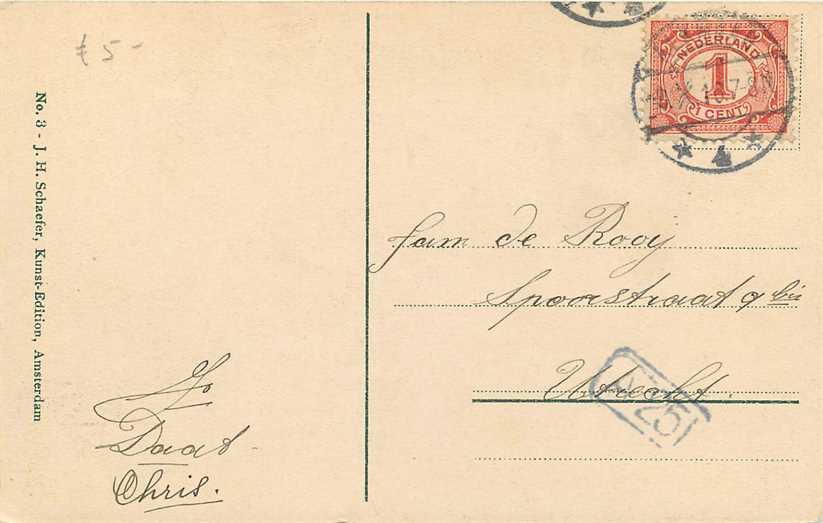 £ 5-
No. 3 - J. H. Schaefer, Kunst-Edition, Amsterdam
NEDERLAND
1
1 CENT
4
fam de Rooij
Spoorstraat 9 bis
Utrecht.
25
Daat
Chris.